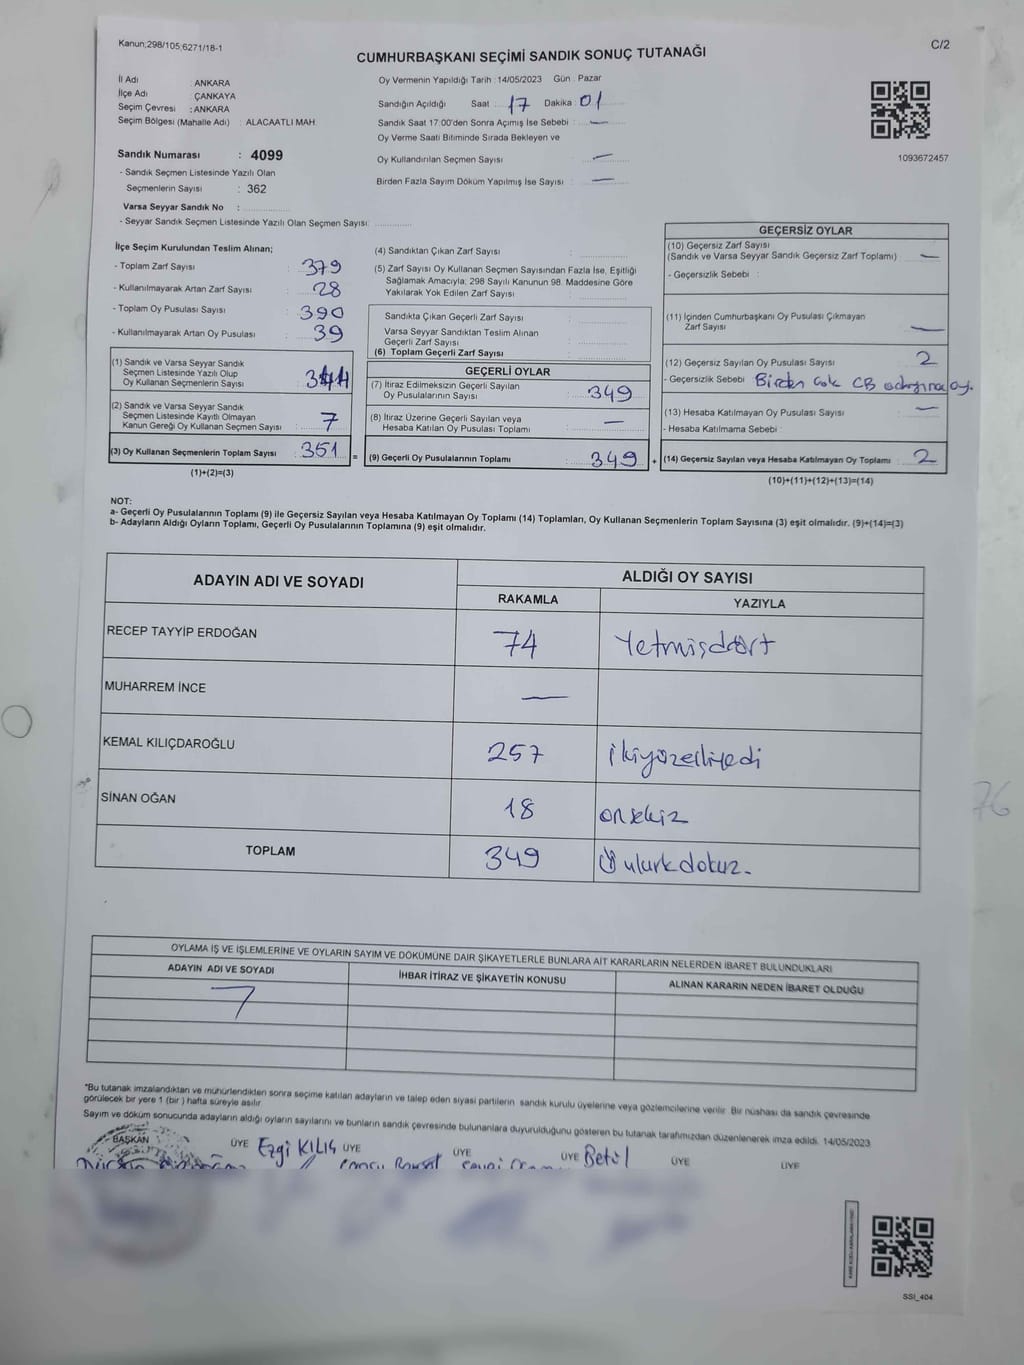 Kanun;298/105;6271/18-1
C/2
CUMHURBAŞKANI SEÇİMİ SANDIK SONUÇ TUTANAĞI
İl Adı : ANKARA
İlçe Adı : ÇANKAYA
Seçim Çevresi : ANKARA
Seçim Bölgesi (Mahalle Adı) : ALACAATLI MAH.
Oy Vermenin Yapıldığı Tarih :14/05/2023 Gün : Pazar
Sandığın Açıldığı Saat : 17 Dakika : 01
Sandık Saat 17:00'den Sonra Açımış İse Sebebi : —
Oy Verme Saati Bitiminde Sırada Bekleyen ve
Oy Kullandırılan Seçmen Sayısı : —
Birden Fazla Sayım Döküm Yapılmış İse Sayısı : —
1093672457
Sandık Numarası : 4099
- Sandık Seçmen Listesinde Yazılı Olan
Seçmenlerin Sayısı : 362
Varsa Seyyar Sandık No :
- Seyyar Sandık Seçmen Listesinde Yazılı Olan Seçmen Sayısı:
İlçe Seçim Kurulundan Teslim Alınan;
- Toplam Zarf Sayısı : 379
- Kullanılmayarak Artan Zarf Sayısı : 28
- Toplam Oy Pusulası Sayısı : 390
- Kullanılmayarak Artan Oy Pusulası : 39
(1) Sandık ve Varsa Seyyar Sandık
Seçmen Listesinde Yazılı Olup
Oy Kullanan Seçmenlerin Sayısı : 344
(2) Sandık ve Varsa Seyyar Sandık
Seçmen Listesinde Kayıtlı Olmayan
Kanun Gereği Oy Kullanan Seçmen Sayısı : 7
(3) Oy Kullanan Seçmenlerin Toplam Sayısı : 351 =
(1)+(2)=(3)
(4) Sandıktan Çıkan Zarf Sayısı :
(5) Zarf Sayısı Oy Kullanan Seçmen Sayısından Fazla İse, Eşitliği
Sağlamak Amacıyla; 298 Sayılı Kanunun 98. Maddesine Göre
Yakılarak Yok Edilen Zarf Sayısı :
Sandıkta Çıkan Geçerli Zarf Sayısı :
Varsa Seyyar Sandıktan Teslim Alınan
Geçerli Zarf Sayısı :
(6) Toplam Geçerli Zarf Sayısı :
GEÇERLİ OYLAR
(7) İtiraz Edilmeksizin Geçerli Sayılan
Oy Pusulalarının Sayısı : 349
(8) İtiraz Üzerine Geçerli Sayılan veya
Hesaba Katılan Oy Pusulası Toplamı : —
(9) Geçerli Oy Pusulalarının Toplamı : 349 +
GEÇERSİZ OYLAR
(10) Geçersiz Zarf Sayısı
(Sandık ve Varsa Seyyar Sandık Geçersiz Zarf Toplamı) : —
- Geçersizlik Sebebi :
(11) İçinden Cumhurbaşkanı Oy Pusulası Çıkmayan
Zarf Sayısı : —
(12) Geçersiz Sayılan Oy Pusulası Sayısı : 2
- Geçersizlik Sebebi : Birden çok CB adayına oy.
(13) Hesaba Katılmayan Oy Pusulası Sayısı : —
- Hesaba Katılmama Sebebi :
(14) Geçersiz Sayılan veya Hesaba Katılmayan Oy Toplamı : 2
(10)+(11)+(12)+(13)=(14)
NOT:
a- Geçerli Oy Pusulalarının Toplamı (9) ile Geçersiz Sayılan veya Hesaba Katılmayan Oy Toplamı (14) Toplamları, Oy Kullanan Seçmenlerin Toplam Sayısına (3) eşit olmalıdır. (9)+(14)=(3)
b- Adayların Aldığı Oyların Toplamı, Geçerli Oy Pusulalarının Toplamına (9) eşit olmalıdır.
ADAYIN ADI VE SOYADI
ALDIĞI OY SAYISI
RAKAMLA
YAZIYLA
RECEP TAYYİP ERDOĞAN 74 Yetmişdört
MUHARREM İNCE —
KEMAL KILIÇDAROĞLU 257 ikiyüzelliyedi
SİNAN OĞAN 18 onsekiz
TOPLAM 349 Üçyüzkırkdokuz.
76
OYLAMA İŞ VE İŞLEMLERİNE VE OYLARIN SAYIM VE DÖKÜMÜNE DAİR ŞİKAYETLERLE BUNLARA AİT KARARLARIN NELERDEN İBARET BULUNDUKLARI
ADAYIN ADI VE SOYADI
İHBAR İTİRAZ VE ŞİKAYETİN KONUSU
ALINAN KARARIN NEDEN İBARET OLDUĞU
7
*Bu tutanak imzalandıktan ve mühürlendikten sonra seçime katılan adayların ve talep eden siyasi partilerin sandık kurulu üyelerine veya gözlemcilerine verilir. Bir nüshası da sandık çevresinde
görülecek bir yere 1 (bir ) hafta süreyle asılır.
Sayım ve döküm sonucunda adayların aldığı oyların sayılarını ve bunların sandık çevresinde bulunanlara duyurulduğunu gösteren bu tutanak tarafımızdan düzenlenerek imza edildi. 14/05/2023
BAŞKAN ÜYE Ezgi KILIÇ ÜYE ÜYE ÜYE Betül ÜYE ÜYE
SSI_404